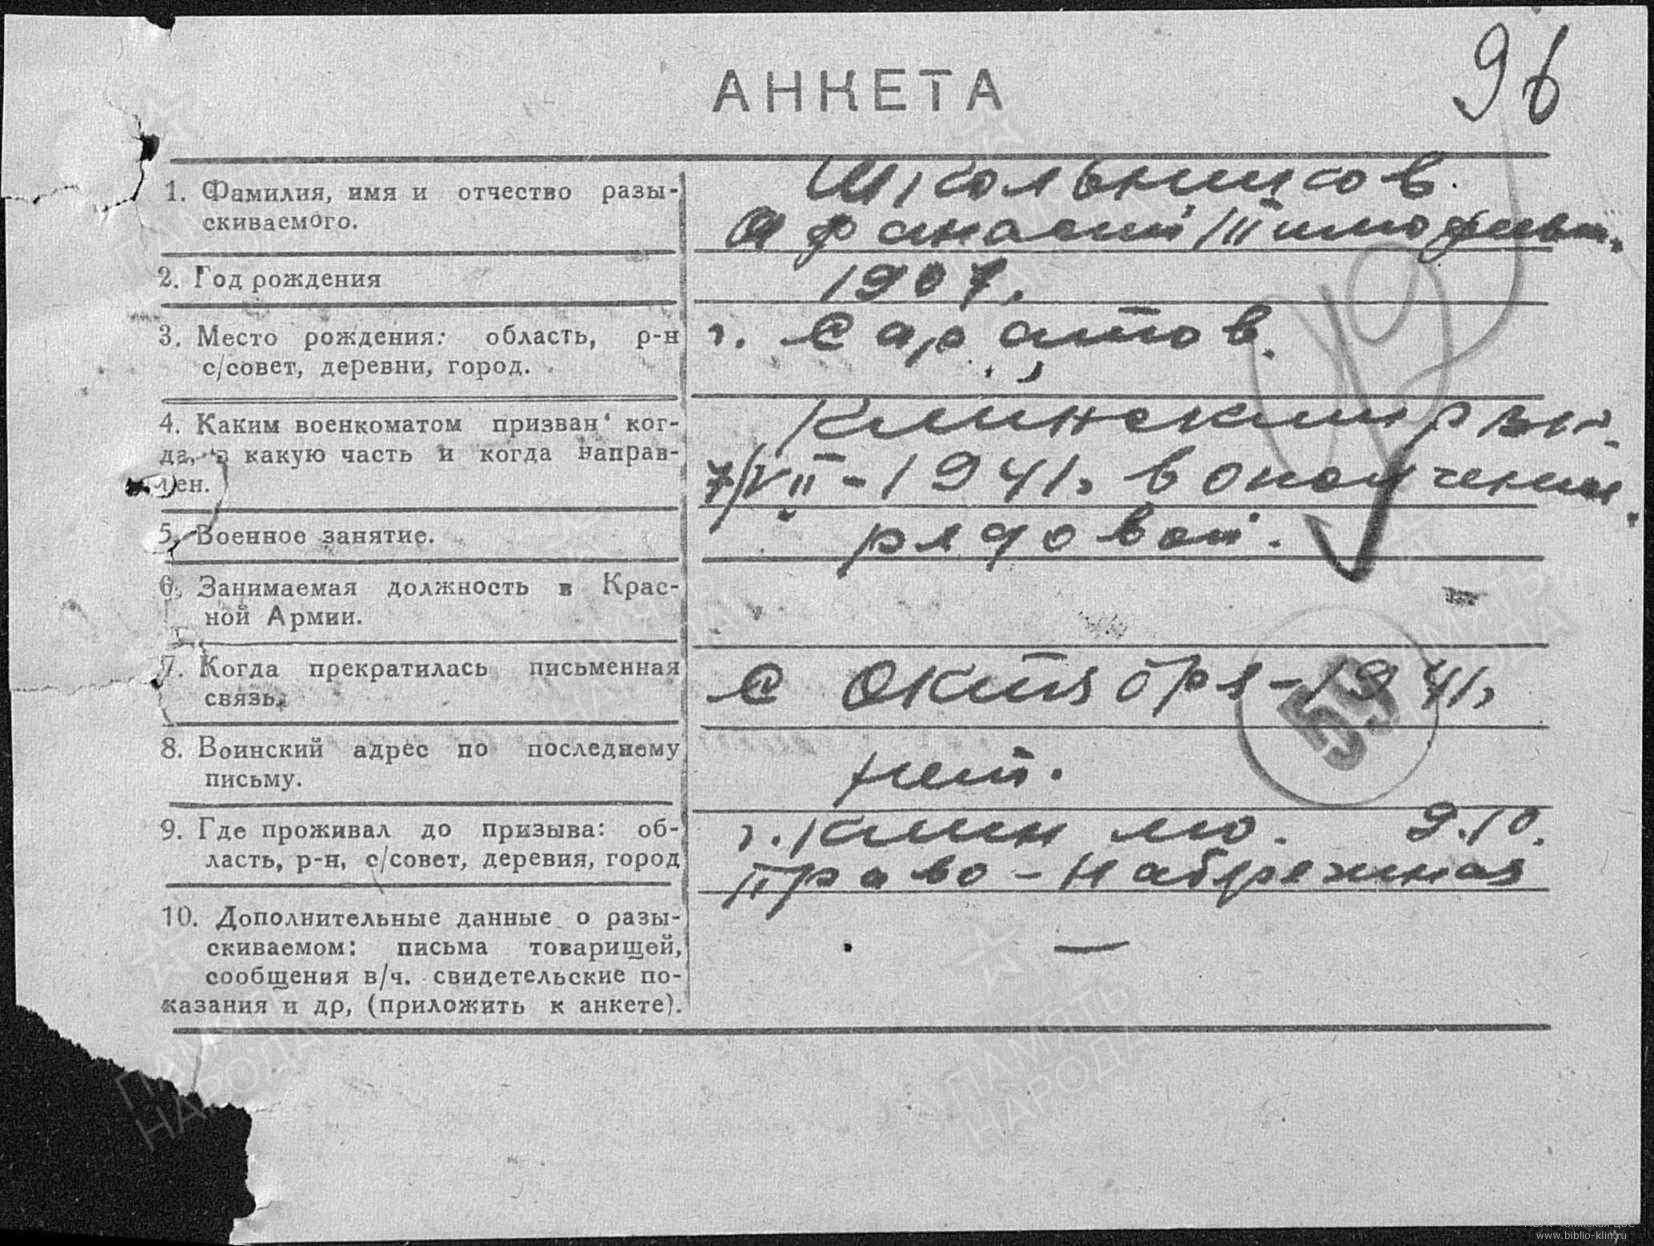 96
АНКЕТА
1. Фамилия, имя и отчество разы-
скиваемого.
Школьников
Афанасий Тимофеевич
2. Год рождения
1907.
3. Место рождения: область, р-н
с/совет, деревни, город.
г. Саратов.
4. Каким военкоматом призван ког-
да, в какую часть и когда направ-
лен.
Клинским РВК
7/VII-1941, в ополчении
5. Военное занятие.
рядовой.
6. Занимаемая должность в Крас-
ной Армии.
7. Когда прекратилась письменная
связь.
с октября-1941,
59
8. Воинский адрес по последнему
письму.
нет.
9. Где проживал до призыва: об-
ласть, р-н, с/совет, деревня, город
г. Клин МО. 9.10.
Право-Набережная
10. Дополнительные данные о разы-
скиваемом: письма товарищей,
сообщения в/ч. свидетельские по-
казания и др, (приложить к анкете).
—
ПАМЯТЬ
НАРОДА
ПАМЯТЬ
НАРОДА
www.biblio-klin.ru